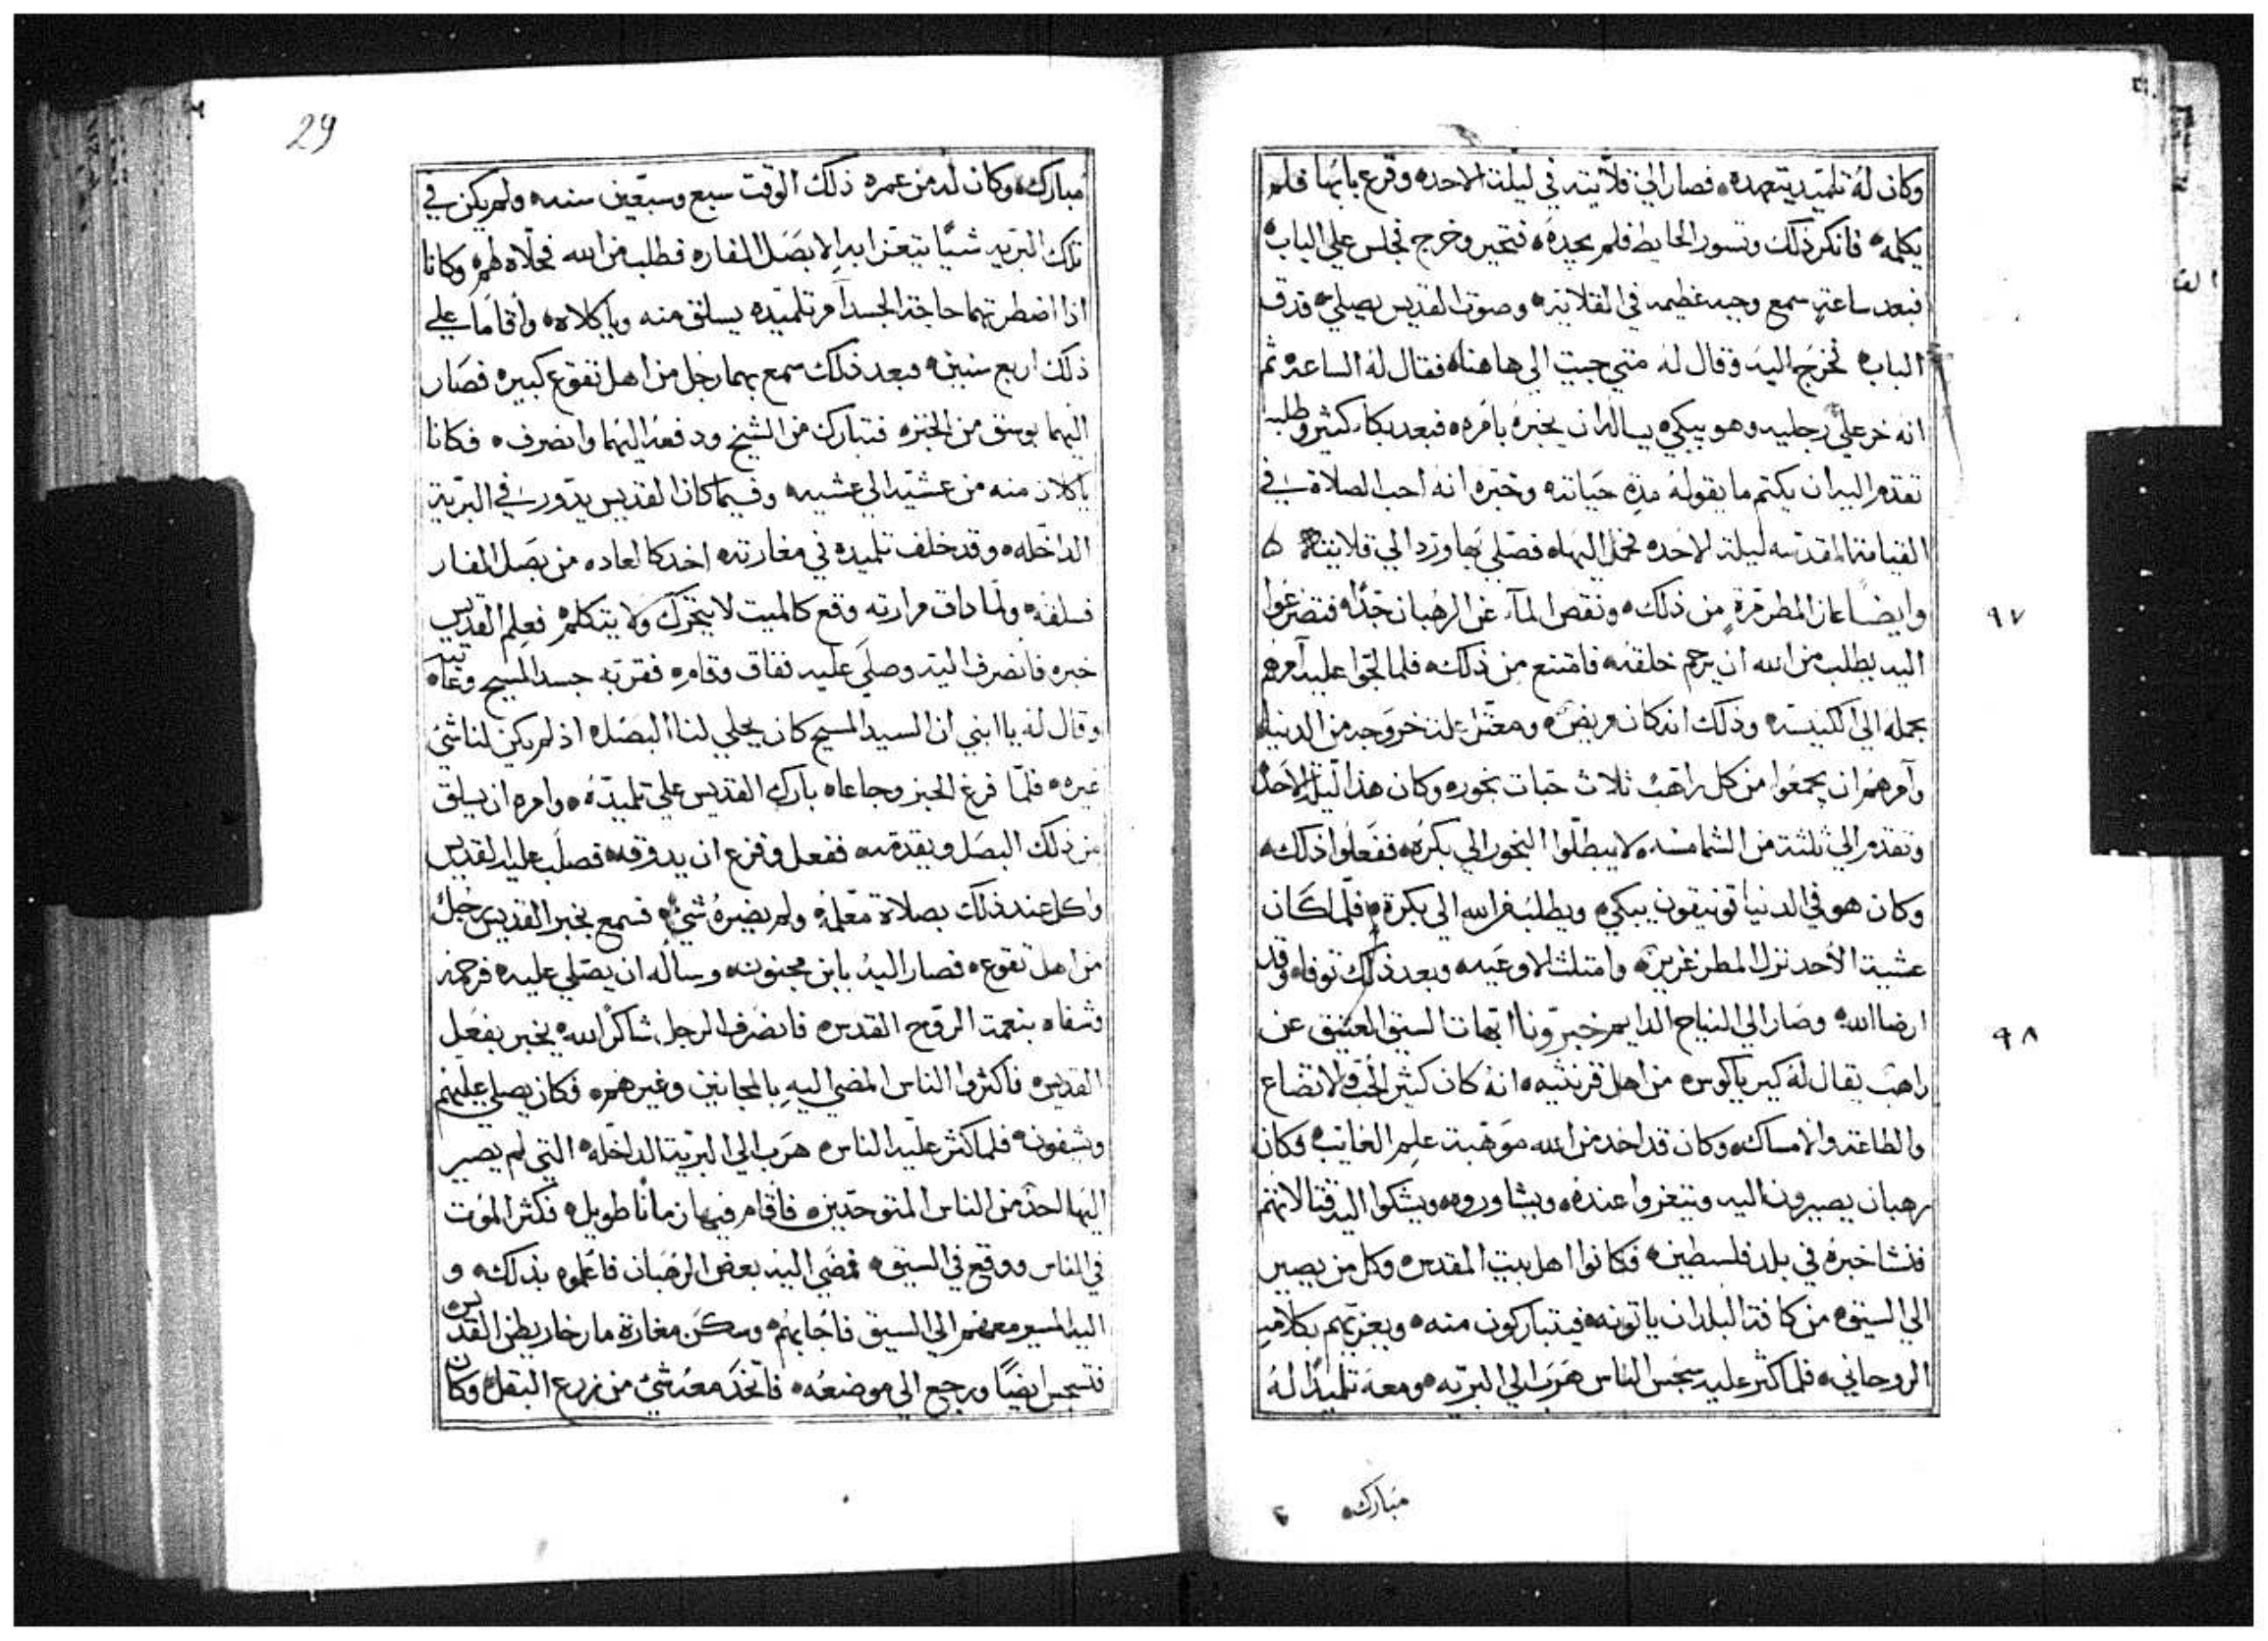 وكان له تلميد يتعهده فصار الي قلايته في ليلة الاحده وقرع بابها فلم
يكلمه فانكر ذلك وتسور الحايط فلم يجده فتحير وخرج فجلس علي الباب
فبعد ساعة سمع وجبه عظيمه في القلايه وصوت القديس يصلي فدق
الباب فخرج اليه وقال له متي جيت الي هاهنا فقال له الساعه ثم
انه خر علي رجليه وهو يبكي يساله ان يخبره بامره فبعد بكاء كثير وطلبه
تقدم اليه ان يكتم ما يقوله مدة حياته وخبره انه احب الصلاة في
القيامة المقدسه ليلة الاحد فحمل اليها فصلي بها ورد الي قلايته
٩٧
وايضًا عاز المطر مرة من ذلك ونقص المآء عن الرهبان جدًا فتضرعوا
اليه يطلب من الله ان يرحم خلقه فامتنع من ذلك فلما لجوا عليه آمرهم
بحمله الي الكنيسه وذلك انه كان مريض خروجه من الدنيا
وآمرهم ان يجمعوا من كل راهب ثلاث حبات بخور وكان هذا ليل الاحد
وتقدم الي ثلثة من الشمامسه لا يبطلوا البخور الي بكره ففعلوا ذلك
وكان هو في الدنياتونيقون يبكي ويطلب من الله الي بكرة فلما كان
عشية الاحد نزل المطر غزير وامتلت الاوعيه وبعد ذلك توفاه وقد
٩٨
ارضا الله وصار الي النياح الدايم خبرونا ابهات السيق العتيق عن
راهب يقال له كيرياكوس من اهل قرنثيه انه كان كثير الحب والاتضاع
والطاعة والامساك وكان قد اخد من الله موهبة علم الغايب فكان
رهبان يصيرون اليه ويتعزوا عنده ويشاوروه ويشكوا اليه قتالاتهم
فنشا خبره في بلد فلسطين فكانوا اهل بيت المقدس وكل من يصير
الي السيق من كافة البلدان ياتونه فيتباركون منه ويعزيهم بكلامه
الروحاني فلما كثر عليه سجس الناس هرب الي البريه ومعه تلميدًا له
مبارك
29
مبارك وكان له من عمره ذلك الوقت سبع وسبعين سنه ولم يكن في
تلك البريه شيًا يتعزا به الا بصل الفاره فطلب من الله فحلاه لهم وكانا
اذا اضطرتهما حاجة الجسد آمر تلميده يسلق منه وياكلاه واقاما علي
ذلك اربع سنين وبعد ذلك سمع بهما رجل من اهل تقوع كبيره فصار
اليهما بوسق من الخبز فتبارك من الشيخ ودفعه اليهما وانصرف فكانا
ياكلان منه من عشية الي عشيه وفيما كان القديس يدور في البرية
الداخله وقد خلف تلميده في مغارته اخد كالعاده من بصل الفار
فسلقه ولما داق مرارته وقع كالميت لا يتحرك ولا يتكلم فعلم القديس
خبره فانصرف اليه وصلي عليه ففاق وقام فقربه جسد المسيح
وقال له يا ابني ان السيد المسيح كان يحلي لنا البصل اذ لم يكن لنا شي
غيره فلما فرغ الخبز وجاعاه بارك القديس علي تلميده وامره ان يسلق
من ذلك البصل ويقدمه ففعل وفزع ان يدوقه فصلب عليه القديس
واكل عند ذلك بصلاة معلمه ولم يضيره شي فسمع بخبر القديس رجل
من اهل تقوع فصار اليه بابن مجنون وساله ان يصلي عليه فرحمه
وشفاه بنعمة الروح القدس فانصرف الرجل شاكر لله يخبر بفعل
القديس فاكثروا الناس المضي اليه بالمجانين وغيرهم فكان يصلي عليهم
ويشفون فلما كثر عليه الناس هرب الي البرية الداخله التي لم يصير
اليها احد من الناس المتوحدين فاقام فيها زمانًا طويل فكثر الموت
في الناس ووقع في السيق فمضي اليه بعض الرهبان فاعلموه بذلك و
اليه المسير معهم الي السيق فاجابهم وسكن مغارة مار خاريطن القديس
فتسجس ايضًا ورجع الي موضعه فاتخد معه شي من زرع البقل وكان